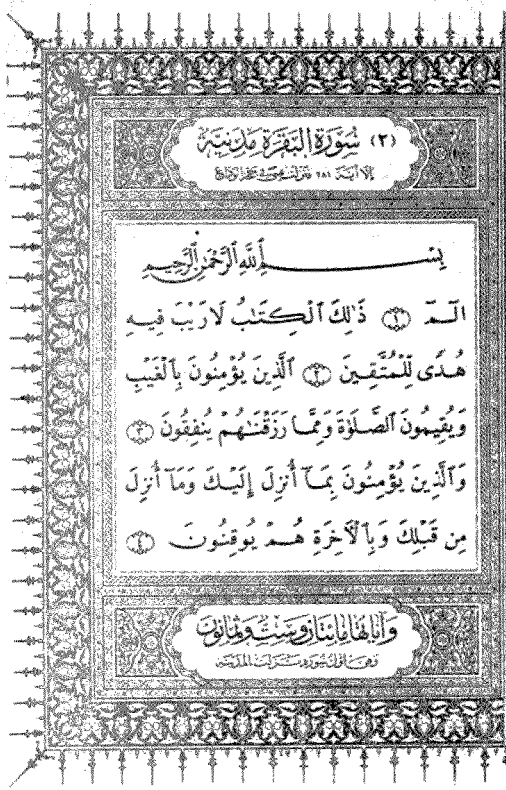 (٢) سُورَةُ البَقَرَةِ مَدَنِيَّة
إلا آية ٢٨١ فنزلت بمنى في حجة الوداع
بِسْمِ ٱللَّهِ ٱلرَّحْمَٰنِ ٱلرَّحِيمِ
الٓمٓ ﴿١﴾ ذَٰلِكَ ٱلْكِتَٰبُ لَا رَيْبَ فِيهِ
هُدًى لِّلْمُتَّقِينَ ﴿٢﴾ ٱلَّذِينَ يُؤْمِنُونَ بِٱلْغَيْبِ
وَيُقِيمُونَ ٱلصَّلَوٰةَ وَمِمَّا رَزَقْنَٰهُمْ يُنفِقُونَ ﴿٣﴾
وَٱلَّذِينَ يُؤْمِنُونَ بِمَآ أُنزِلَ إِلَيْكَ وَمَآ أُنزِلَ
مِن قَبْلِكَ وَبِٱلْأَخِرَةِ هُمْ يُوقِنُونَ ﴿٤﴾
وَآيَاتُهَا مِائَتَانِ وَسِتٌّ وَثَمَانُونَ
وهي أول سورة نزلت بالمدينة